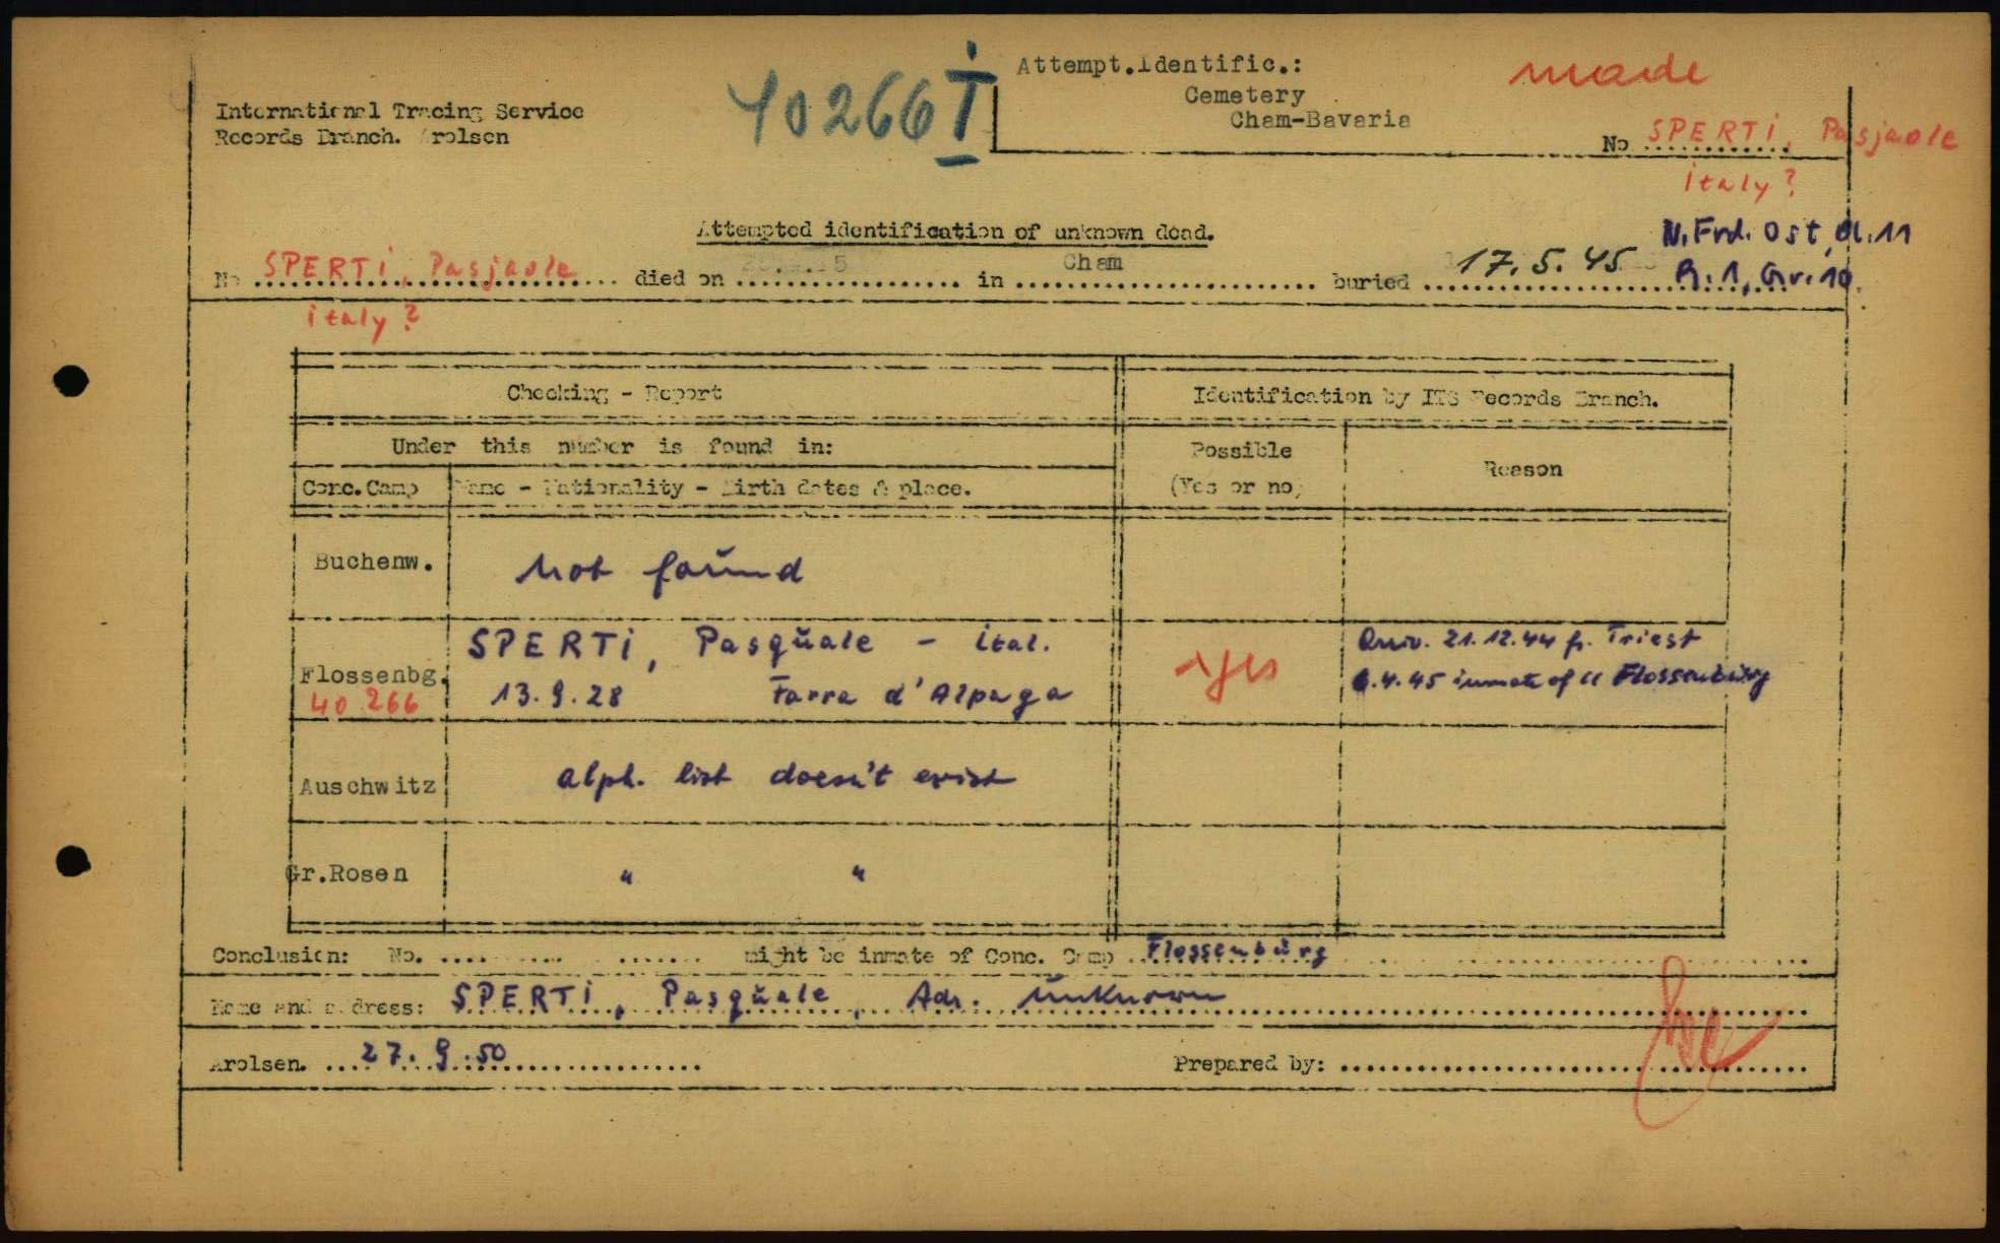 International Tracing Service
Records Branch. Arolsen
40266 I
Attempt.Identific.:
Cemetery
Cham-Bavaria
made
No SPERTI, Pasjaole
italy?
Attempted identification of unknown dead.
N. Frd. Ost,
R. 1, Gr. 10.
No SPERTI, Pasjaole died on in Cham buried 17.5.45
italy?
Checking - Report
Identification by ITS Records Branch.
Under this number is found in:
Possible
(Yes or no)
Reason
Conc.Camp Name - Nationality - Birth dates & place.
Buchenw. not found
Flossenbg. 40 266
SPERTI, Pasquale - ital.
13.9.28 Farra d'Alpaga
yes
21.12.44 fr. Triest
.4.45 inmate of CC Flossenbürg
Auschwitz alph. list doesn't exist
Gr.Rosen " "
Conclusion: No. might be inmate of Conc. Camp Flossenbürg
Name and address: SPERTI, Pasquale, Adr. unknown
Arolsen. 27.9.50 Prepared by: